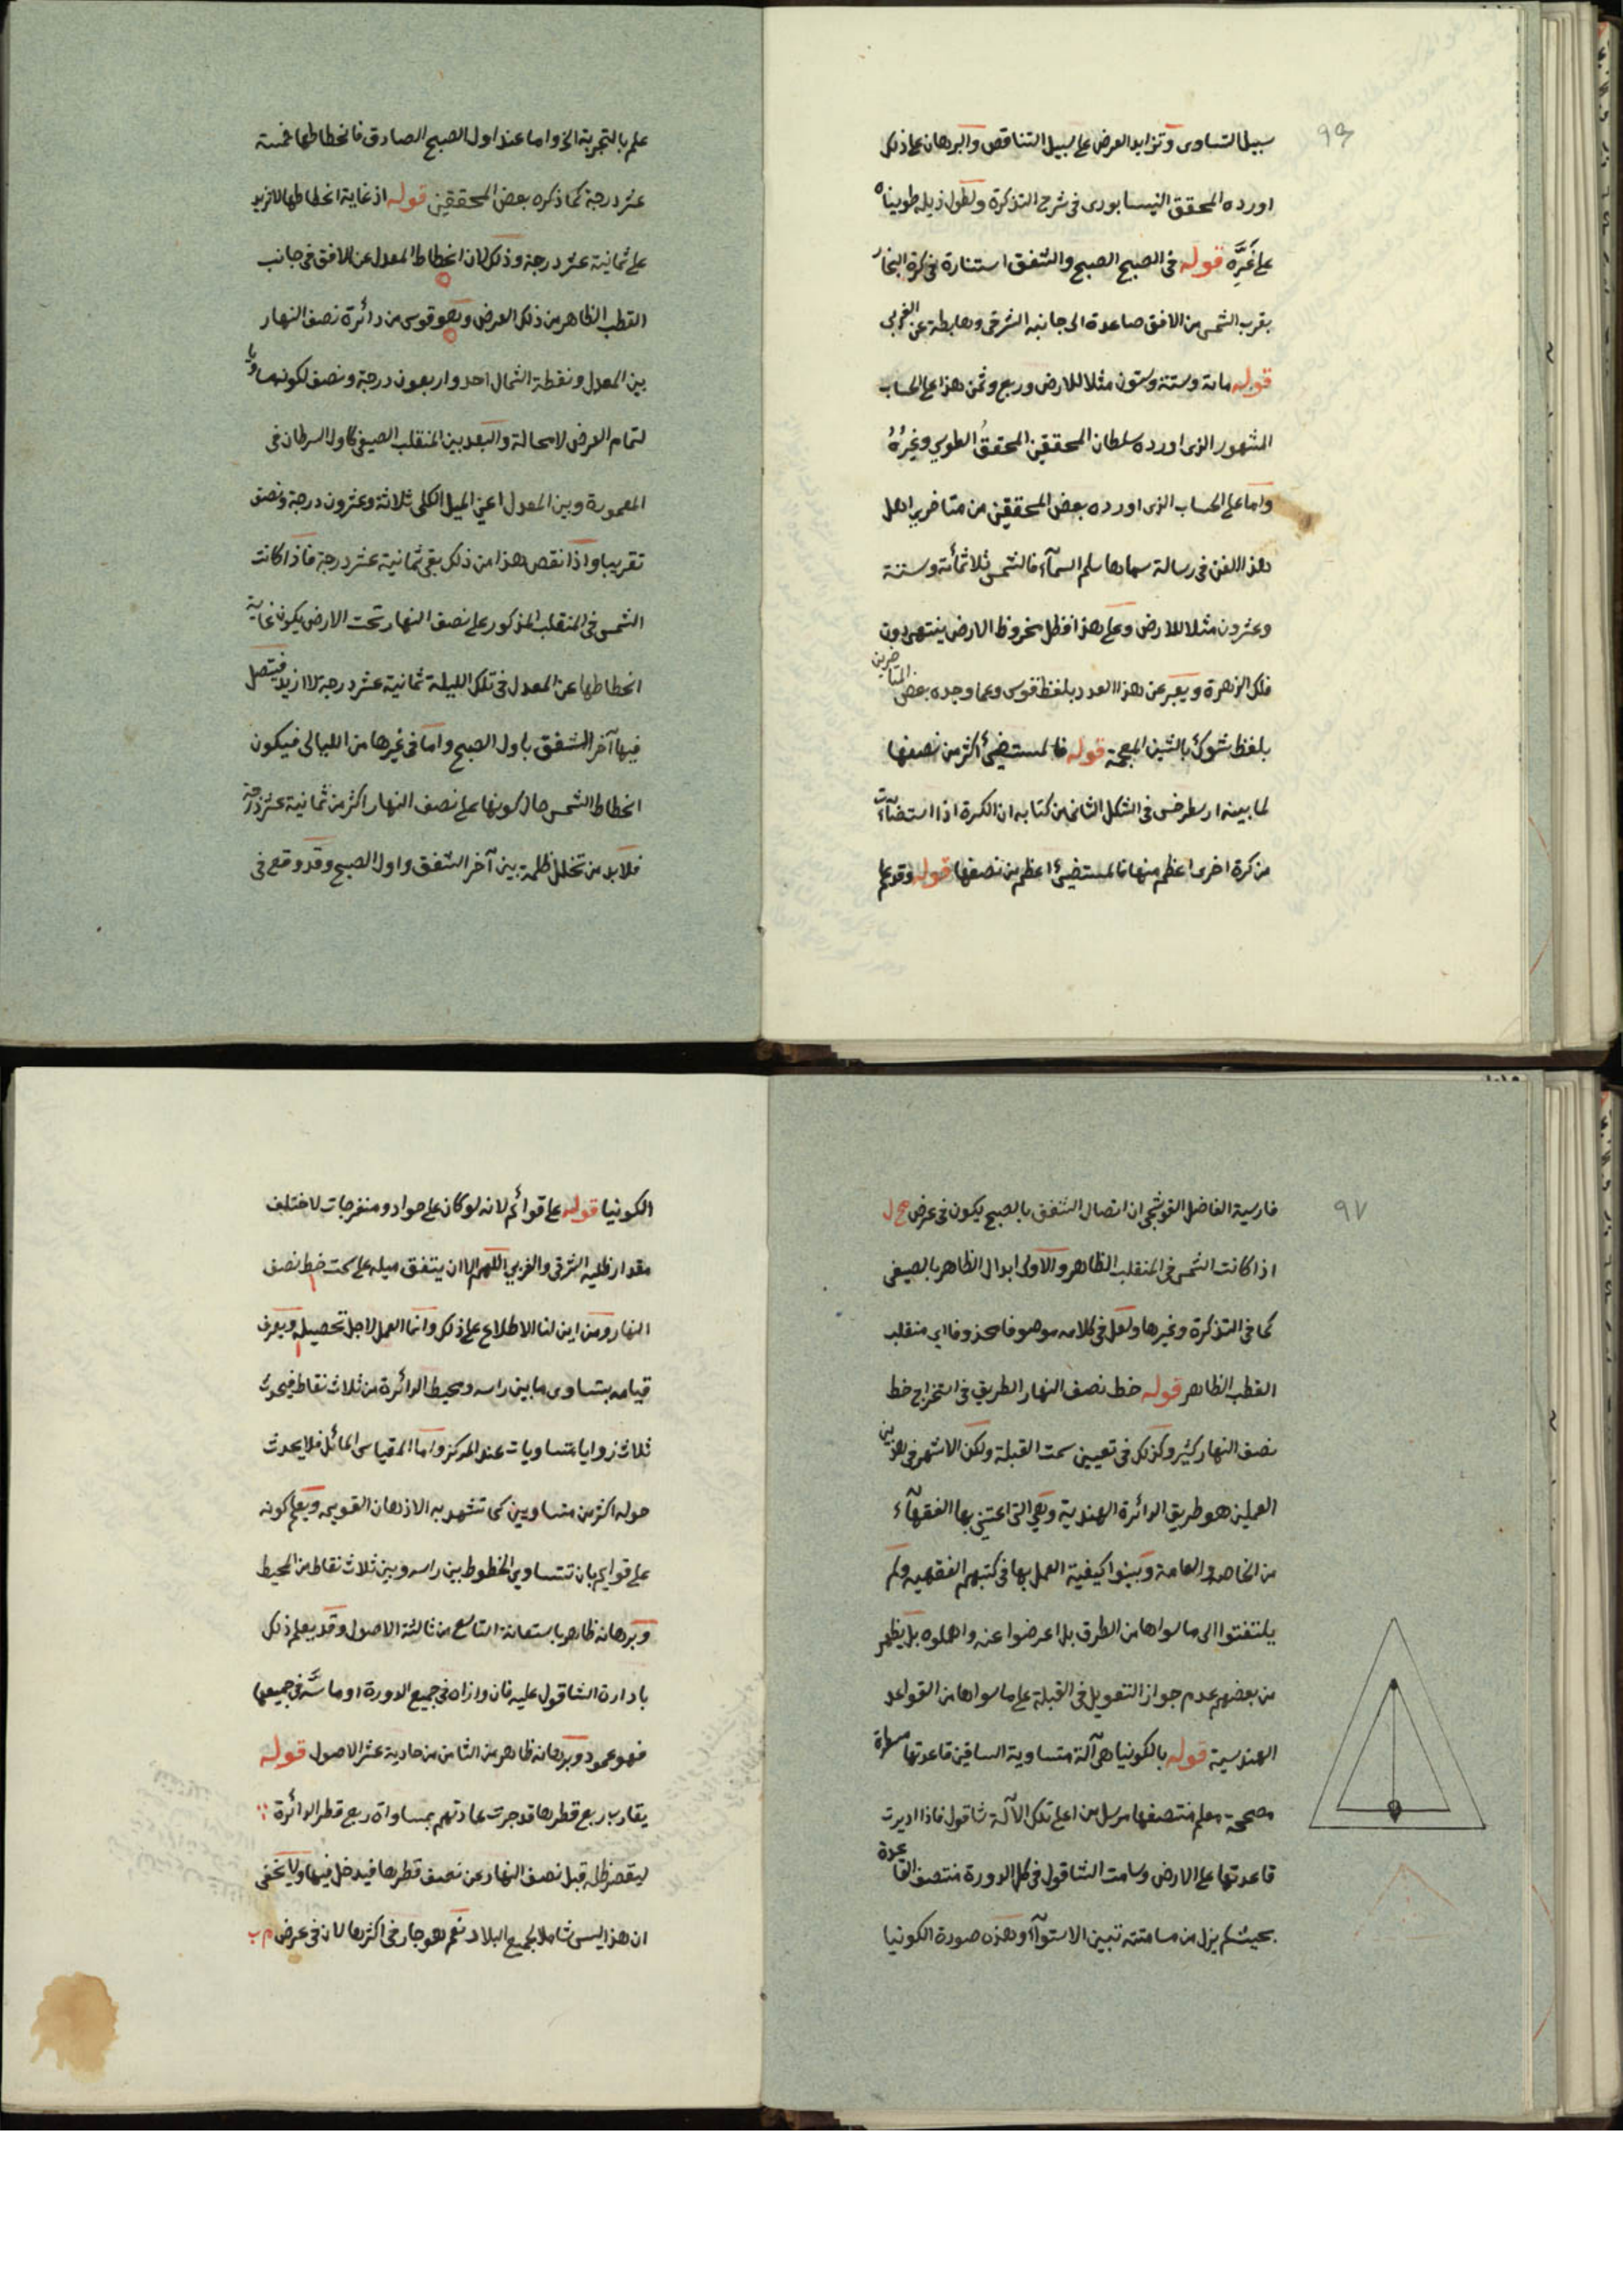 ٩٦
سبيل التساوى وتزايد العرض على سبيل التناقص والبرهان على ذلك
اورده المحقق النيسابورى فى شرح التذكرة ولطول ذيله طويناه
على غَرِّه قوله فى الصبح الصبح والشفق استنارة فى كرة البخار
بقرب الشمس من الافق صاعدة الى جانبه الشرقى وهابطة عن الغربى
قوله مائة وستة وستون مثلا للارض وربع وثمن هذا على الحساب
المشهور الذى اورده سلطان المحققين المحقق الطوسى وغيره
واما على الحساب الذى اورده بعض المحققين من متاخرى اهل
هذا الفن فى رسالة سماها سلم السمآء فالشمس ثلاثمائة وستة
وعشرون مثلا للارض وعلى هذا فظل مخروط الارض ينتهى دون
فلك الزهرة ويعبر عن هذا العدد بلفظ قوس وعما وجده بعض المتاخرين
بلفظ شوك بالشين المعجمة قوله فالمستضئ أكثر من نصفها
لما بينه ارسطرخس فى الشكل الثانى من كتابه ان الكرة اذا استضآءت
من كرة اخرى اعظم منها فالمستضئ اعظم من نصفها قوله وقد علم
علم بالتجربة الخ واما عند اول الصبح الصادق فانحطاطها خمسة
عشر درجة كما ذكره بعض المحققين قوله اذ غاية انحطاطها لا تزيد
على ثمانية عشر درجة وذلك لان انحطاط المعدل عن الافق فى جانب
القطب الظاهر من ذلك العرض وهو قوس من دائرة نصف النهار
بين المعدل ونقطة الشمال احد واربعون درجة ونصف لكونه مساويا
لتمام العرض لا محالة والبعد بين المنقلب الصيفى كاول السرطان فى
المعمورة وبين المعدل اعنى الميل الكلى ثلاثة وعشرون درجة ونصف
تقريبا واذا نقص هذا من ذلك بقى ثمانية عشر درجة فاذا كانت
الشمس فى المنقلب المذكور على نصف النهار تحت الارض يكون غاية
انحطاطها عن المعدل فى تلك الليلة ثمانية عشر درجة لا ازيد فيتصل
فيها آخر الشفق باول الصبح واما فى غيرها من الليالى فيكون
انحطاط الشمس حال كونها على نصف النهار اكثر من ثمانية عشر درجة
فلابد من تخلل ظلمة بين آخر الشفق واول الصبح وقد وقع فى
٩٧
فارسية الفاضل القوشجى ان اتصال الشفق بالصبح يكون فى عرض مح ل
اذا كانت الشمس فى المنقلب الظاهر والاولى ابدال الظاهر بالصيفى
كما فى التذكرة وغيرها ولعل فى كلامه موصوفا محذوفا اى منقلب
القطب الظاهر قوله خط نصف النهار الطريق فى استخراج خط
نصف النهار كثير وكذلك فى تعيين سمت القبلة ولكن الاشهر فى هذين
العملين هو طريق الدائرة الهندية وهى التى اعتنى بها الفقهآء
من الخاصة والعامة وبينوا كيفية العمل بها فى كتبهم الفقهيه ولم
يلتفتوا الى ما سواها من الطرق بل اعرضوا عنه واهملوه بل يظهر
من بعضهم عدم جواز التعويل فى القبلة على ما سواها من القواعد
الهندسية قوله بالكونيا هى آلة متساوية الساقين قاعدتها مسطرة
مصححة معلم منتصفها مرسل من اعلى تلك الآلة شاقول فاذا اديرت
قاعدتها على الارض وسامت الشاقول فى كل الدورة منتصف القاعدة
بحيث لم يزل من مسامتته تبين الاستوآء وهذه صورة الكونيا
الكونيا قوله على قوائم لانه لو كان على حواد ومنفرجات لاختلف
مقدار ظليه الشرقى والغربى اللهم الا ان يتفق ميله على سمت خط نصف
النهار ومن اين لنا الاطلاع على ذلك وانما العمل لاجل تحصيله ويعرف
قيامه بتساوى ما بين راسه ومحيط الدائرة من ثلاث نقاط فيحدث
ثلاث زوايا متساويات عند المركز واما المقياس المائل فلا يحدث
حوله اكثر من متساويين كما تشهد به الاذهان القويمه ويعلم كونه
على قوايم بان تتساوى الخطوط بين راسه وبين ثلاث نقاط من المحيط
وبرهانه ظاهر باستعانة التاسع من ثالثة الاصول وقد يعلم ذلك
بادارة الشاقول عليه فان وازاه فى جميع الدورة او ماسّه فى جميعها
فهو عمود وبرهانه ظاهر من الثامن من حادية عشر الاصول قوله
يقارب ربع قطرها قد جرت عادتهم بمساواة ربع قطر الدائرة
ليقصر ظله قبل نصف النهار عن نصف قطرها فيدخل فيها ولا يخفى
ان هذا ليس شاملا لجميع البلاد نعم هو جار فى اكثرها لان فى عرض م ب